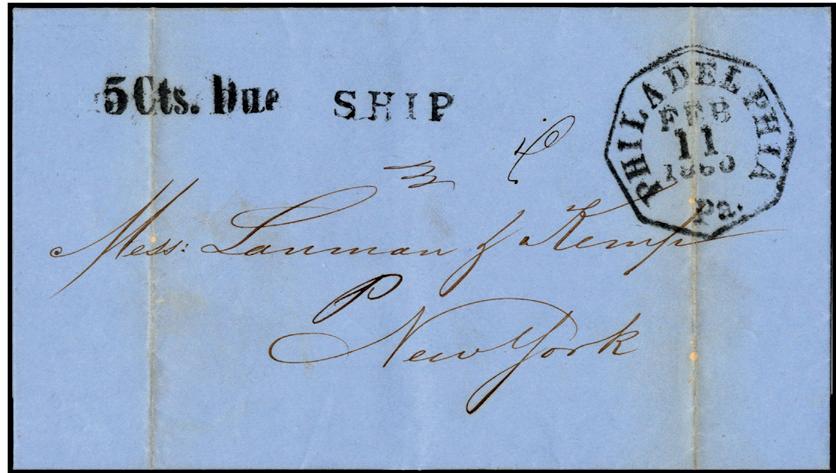 5 Cts. Due
SHIP
PHILADELPHIA
FEB
11
1860
Pa.
Mess: Lanman & Kemp
New York